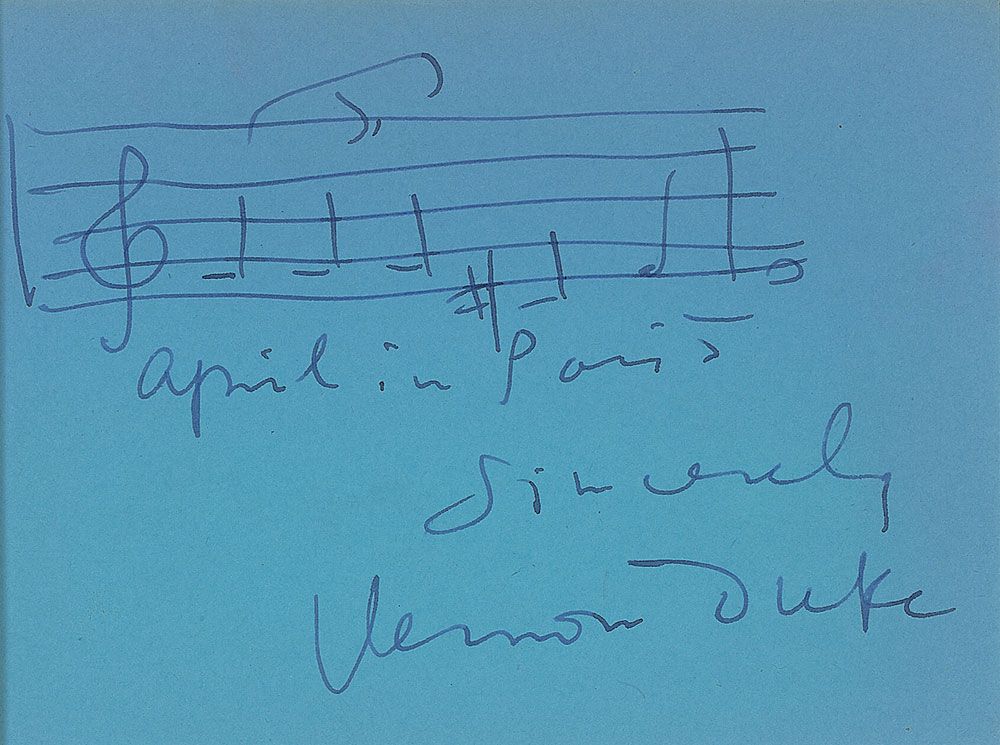 April in Paris
Sincerely
Vernon Duke